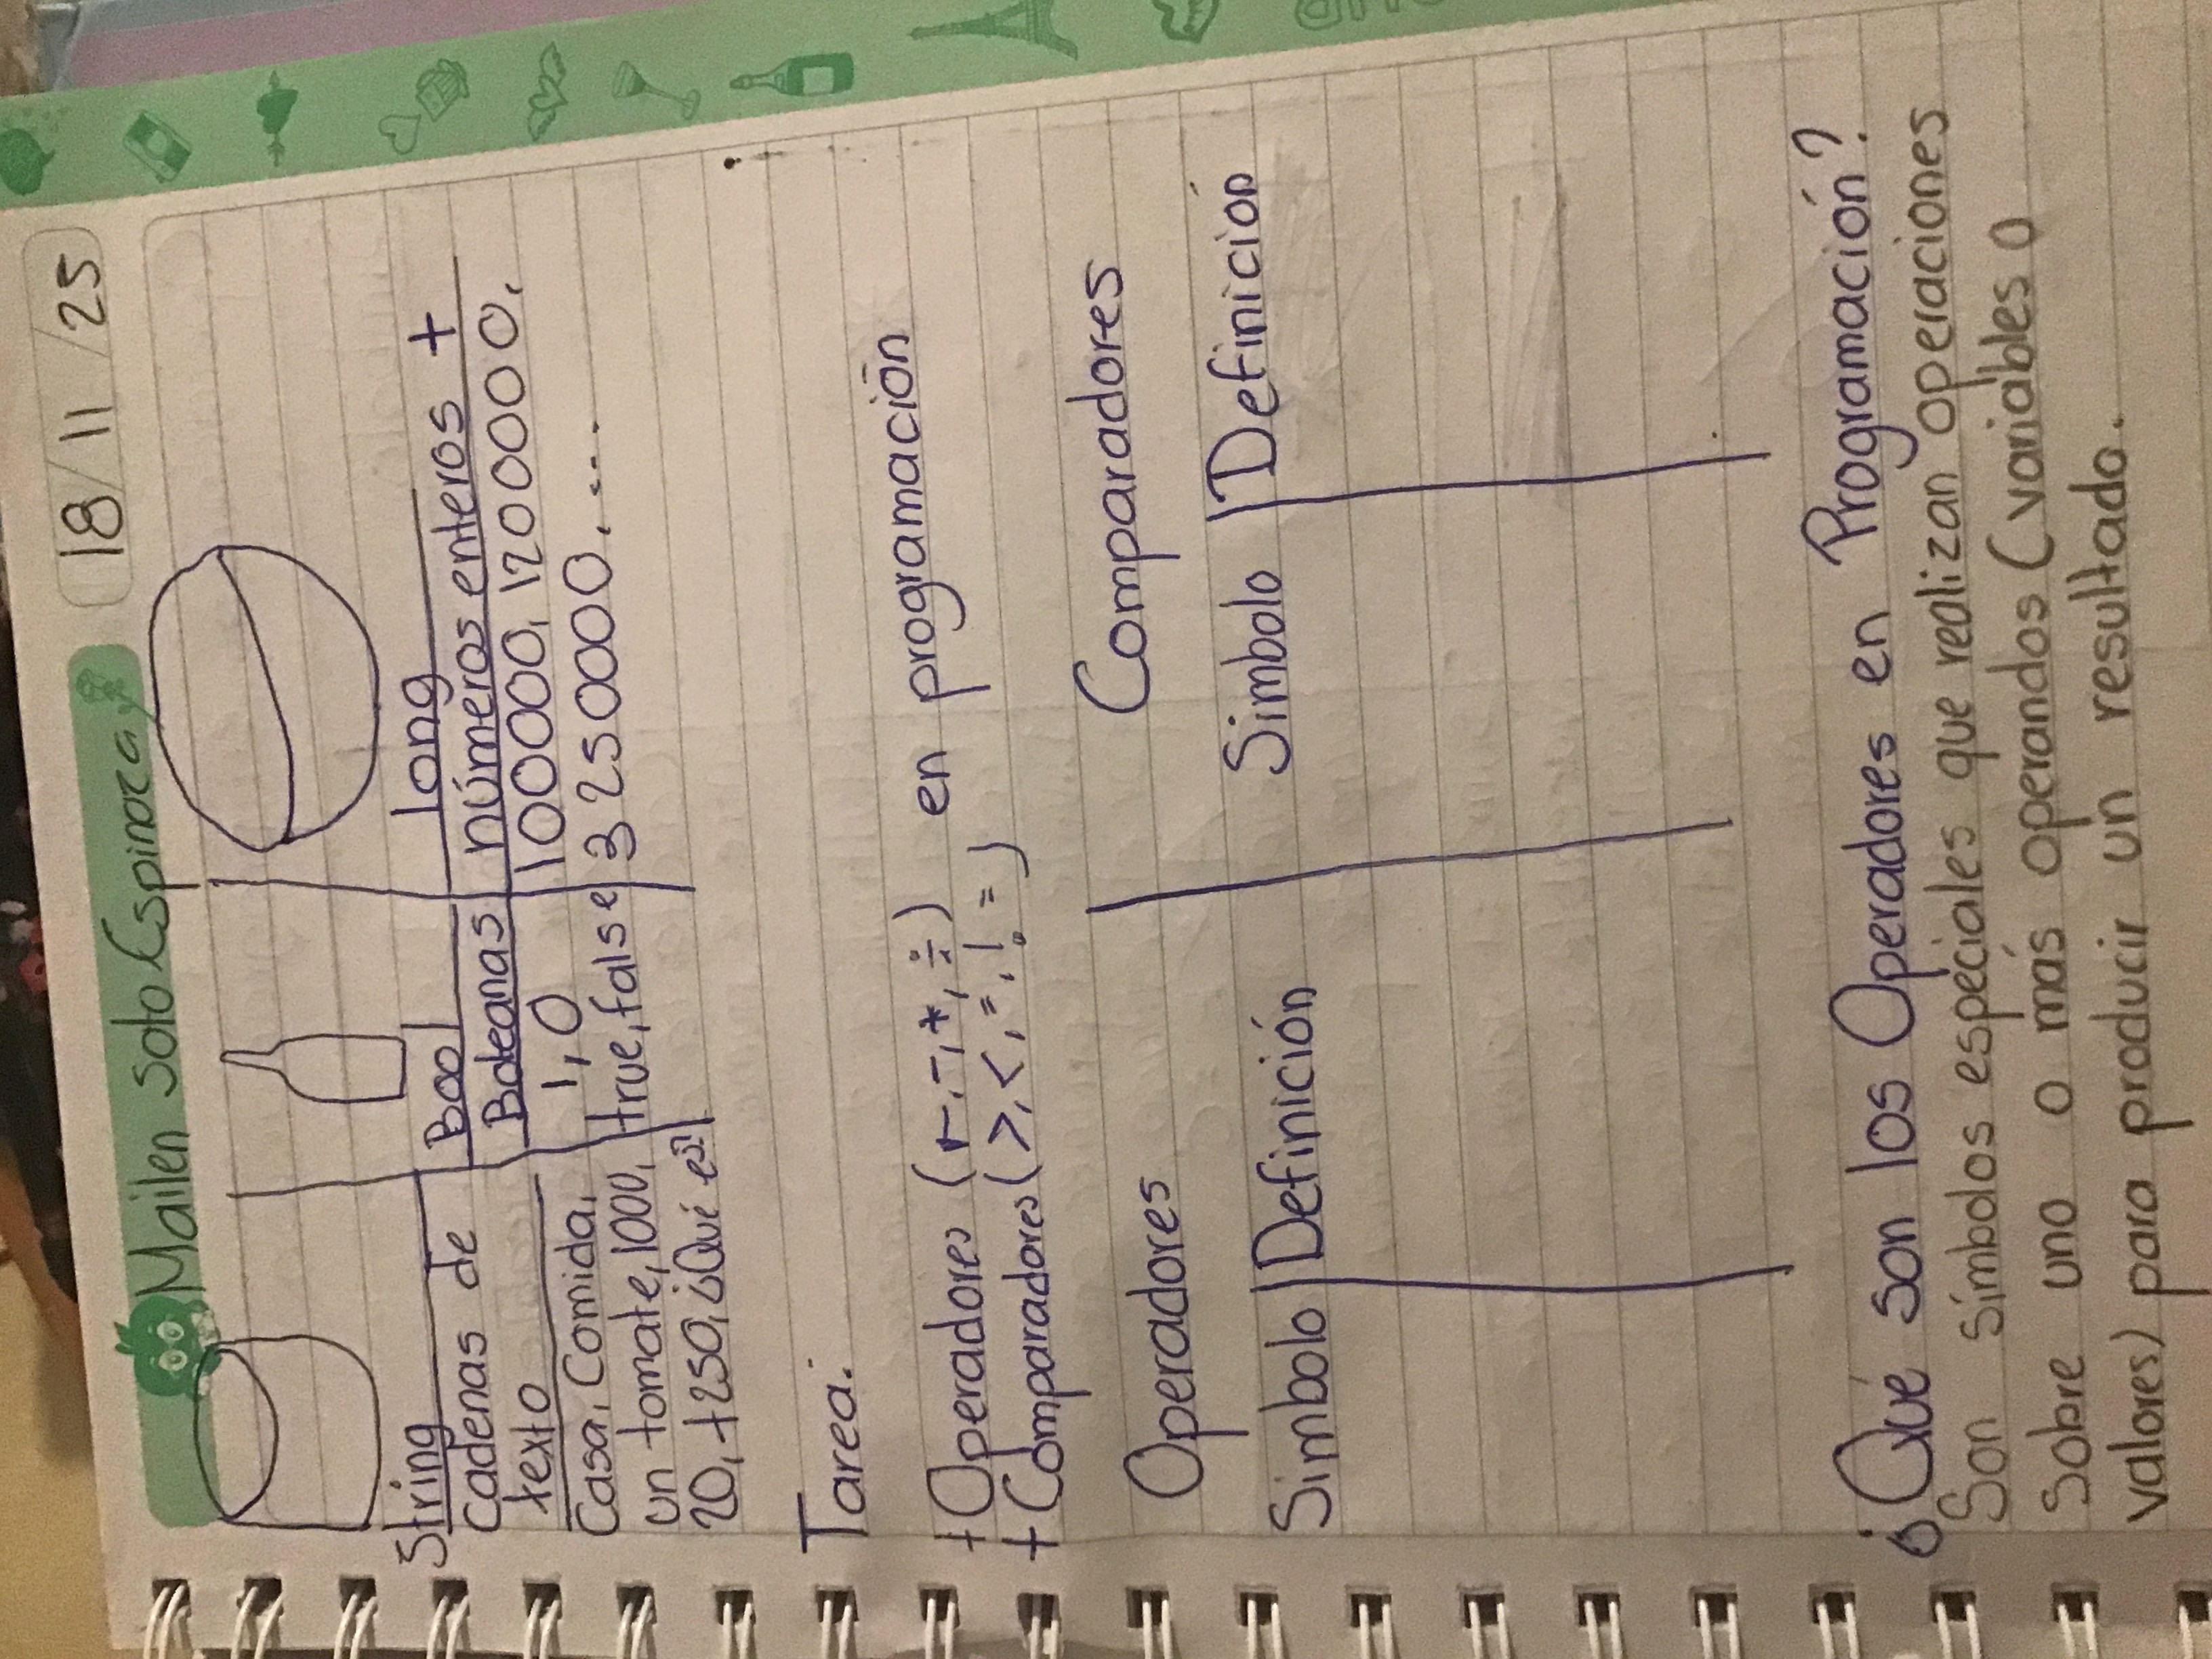 18/11/25
Mailen Soto Espinoza
String
Cadenas de
texto
Casa, Comida,
un tomate, 1000,
20, +250, ¿Qué es?
Bool
Boleanas
1, 0
true, false
long
números enteros +
100000, 1200000,
3250000, ...
Tarea:
+ Operadores (+, -, *, ÷) en programación
+ Comparadores (>, <, =, != )
Operadores
Simbolo | Definición
Comparadores
Simbolo | Definición
¿Qué son los Operadores en Programación?
Son símbolos especiales que realizan operaciones
sobre uno o más operandos (variables o
valores) para producir un resultado.